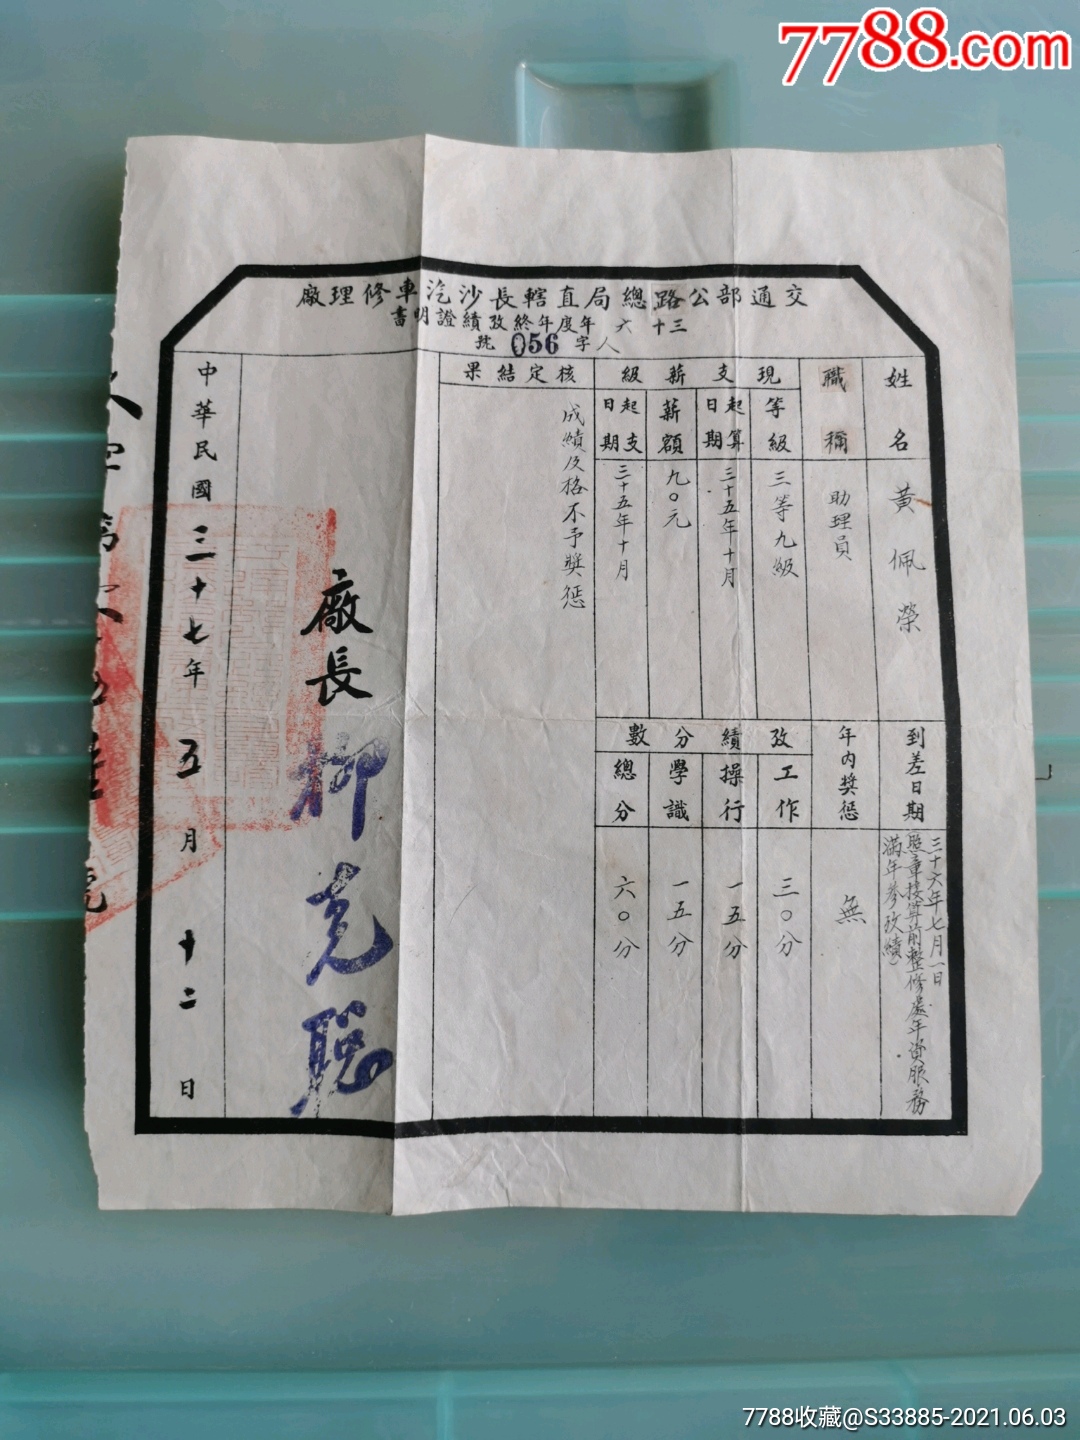 7788.com
交通部公路總局直轄長沙汽車修理廠
三十六年度年終攷績證明書
人字056號
姓名
黃佩榮
職稱
助理員
現支薪級
等級
三等九級
起算日期
三十五年十月
薪額
九〇元
起支日期
三十五年十月
核定結果
成績及格不予獎懲
到差日期
三十六年七月一日
照章接算前整修處年資服務
滿年參攷績
年內獎懲
無
攷績分數
工作
三〇分
操行
一五分
學識
一五分
總分
六〇分
廠長
柳克聰
中華民國三十七年五月十二日
7788收藏@S33885-2021.06.03